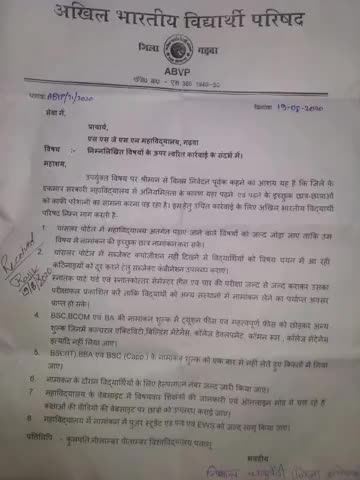 अखिल भारतीय विद्यार्थी परिषद
जिला गढ़वा
ABVP
पत्रांक ABVP/21/2020 दिनांक 19-08-2020
सेवा में,
प्राचार्य,
एस एस जे एस एन महाविद्यालय, गढ़वा
विषय :- निम्नलिखित विषयों के ऊपर त्वरित कार्रवाई के संदर्भ में।
महाशय,
उपर्युक्त विषय पर श्रीमान से विनम्र निवेदन पूर्वक कहने का आशय यह है कि जिले के
एकमात्र सरकारी महाविद्यालय में अनियमितता के कारण यहां पढ़ने एवं पढ़ने के इच्छुक छात्र-छात्राओं
को काफी परेशानी का सामना करना पड़ रहा है। इस हेतु उचित कार्रवाई के लिए अखिल भारतीय विद्यार्थी
परिषद निम्न मांग करती है-
1 चांसलर पोर्टल में महाविद्यालय अंतर्गत पढ़ाए जाने वाले विषयों को जल्द जोड़ा जाए ताकि उस
विषय में नामांकन की इच्छुक छात्र नामांकन करा सकें।
2 चांसलर पोर्टल में सब्जेक्ट कंबीनेशन नहीं दिखने से विद्यार्थियों को विषय चयन में आ रही
कठिनाइयों को दूर करने हेतु सब्जेक्ट कंबीनेशन उपलब्ध कराएं।
3 स्नातक पार्ट एवं स्नातकोत्तर सेमेस्टर तीन एवं चार की परीक्षा जल्द से जल्द कराकर उसका
परीक्षाफल प्रकाशित करें ताकि विद्यार्थियों को अन्य संस्थानों में नामांकन लेने का पर्याप्त अवसर
प्राप्त हो सके।
4 BSC,BCOM एवं BA की नामांकन शुल्क में ट्यूशन फीस एवं महत्वपूर्ण फीस को छोड़कर अन्य
शुल्क जिनमें कल्चरल एक्टिविटी,बिल्डिंग मेंटेनेंस, कॉलेज डेवलपमेंट कॉमन रूम , कॉलेज मेंटेनेंस
इत्यादि नहीं लिया जाए।
5 BSC(IT),BBA एवं BSC (Capp ) के नामांकन शुल्क को एक बार में नहीं लेते हुए किस्तों में लिया
जाए।
6 नामांकन के दौरान विद्यार्थियों के लिए हेल्पलाइन नंबर जल्द जारी किया जाए।
7 महाविद्यालय के वेबसाइट में विषयवार शिक्षकों की जानकारी एवं ऑनलाइन मोड में चल रहे हैं
कक्षाओं की वीडियो की वेबसाइट पर छात्रों को उपलब्ध कराई जाए।
8 महाविद्यालय में नामांकन में पुअर स्टूडेंट फंड एवं EWS को जल्द लागू किया जाए।
प्रतिलिपि - कुलपति,नीलाम्बर पीताम्बर विश्वविद्यालय,पलामू
भवदीय
Received
19/8/2020